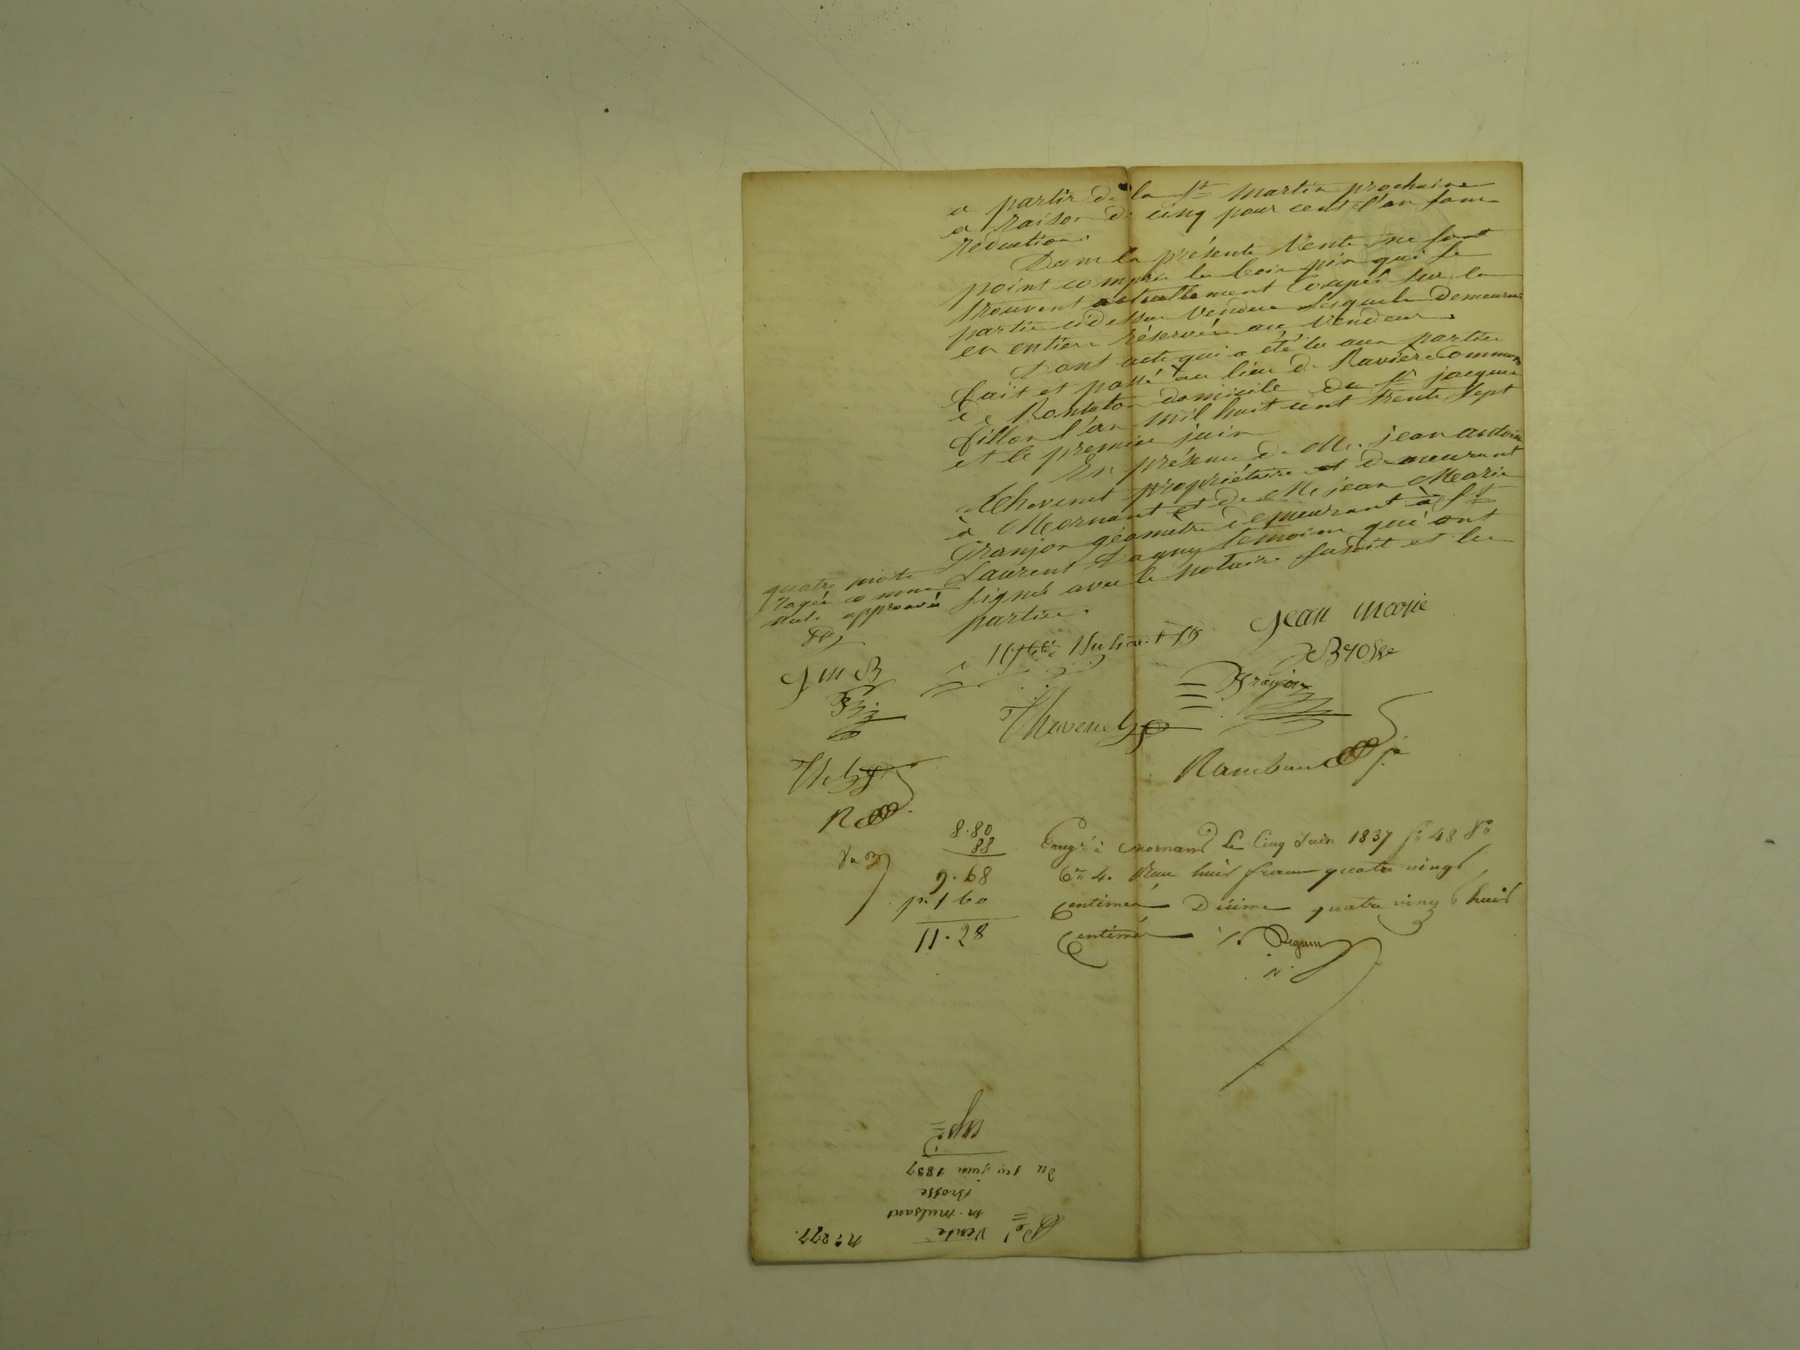 a partir de la St Martin prochaine
a raison de cinq pour cent l'an sans
réduction.
Dans la présente Vente ne sont
point compris les bois pin qui se
trouvent actuellement coupés sur la
partie cidessus Vendue lesquels demeurent
en entier réservés au Vendeur.
Dont acte qui a été lu aux parties
fait et passé au lieu de Ravière Commune
de Rontalon domicile du Sr jacques
fillon l'an mil huit cent trente sept
et le premier juin
En présence de M. jean antoine
Thevenet propriétaire et demeurant
à Mornant et de M. jean Marie
Granjon géomètre demeurant à St
Laurent Dagny témoins qui ont
signé avec le notaire susdit et les
parties.
quatre mots
rayés comme
nuls approuvés
J M B
jean marie
Brosse
Granjon
Thevenet
Rambaud
8.80
88
9.68
1 60
11.28
Enregé à Mornant Le Cinq Juin 1837 fo 48 Vo
Ce 4. Reçu huit francs quatre vingt
Centimes Décime quatre vingt huit
Centimes
No 277.
Vente
m. mulsant
Brosse
du 1er juin 1837
Expé